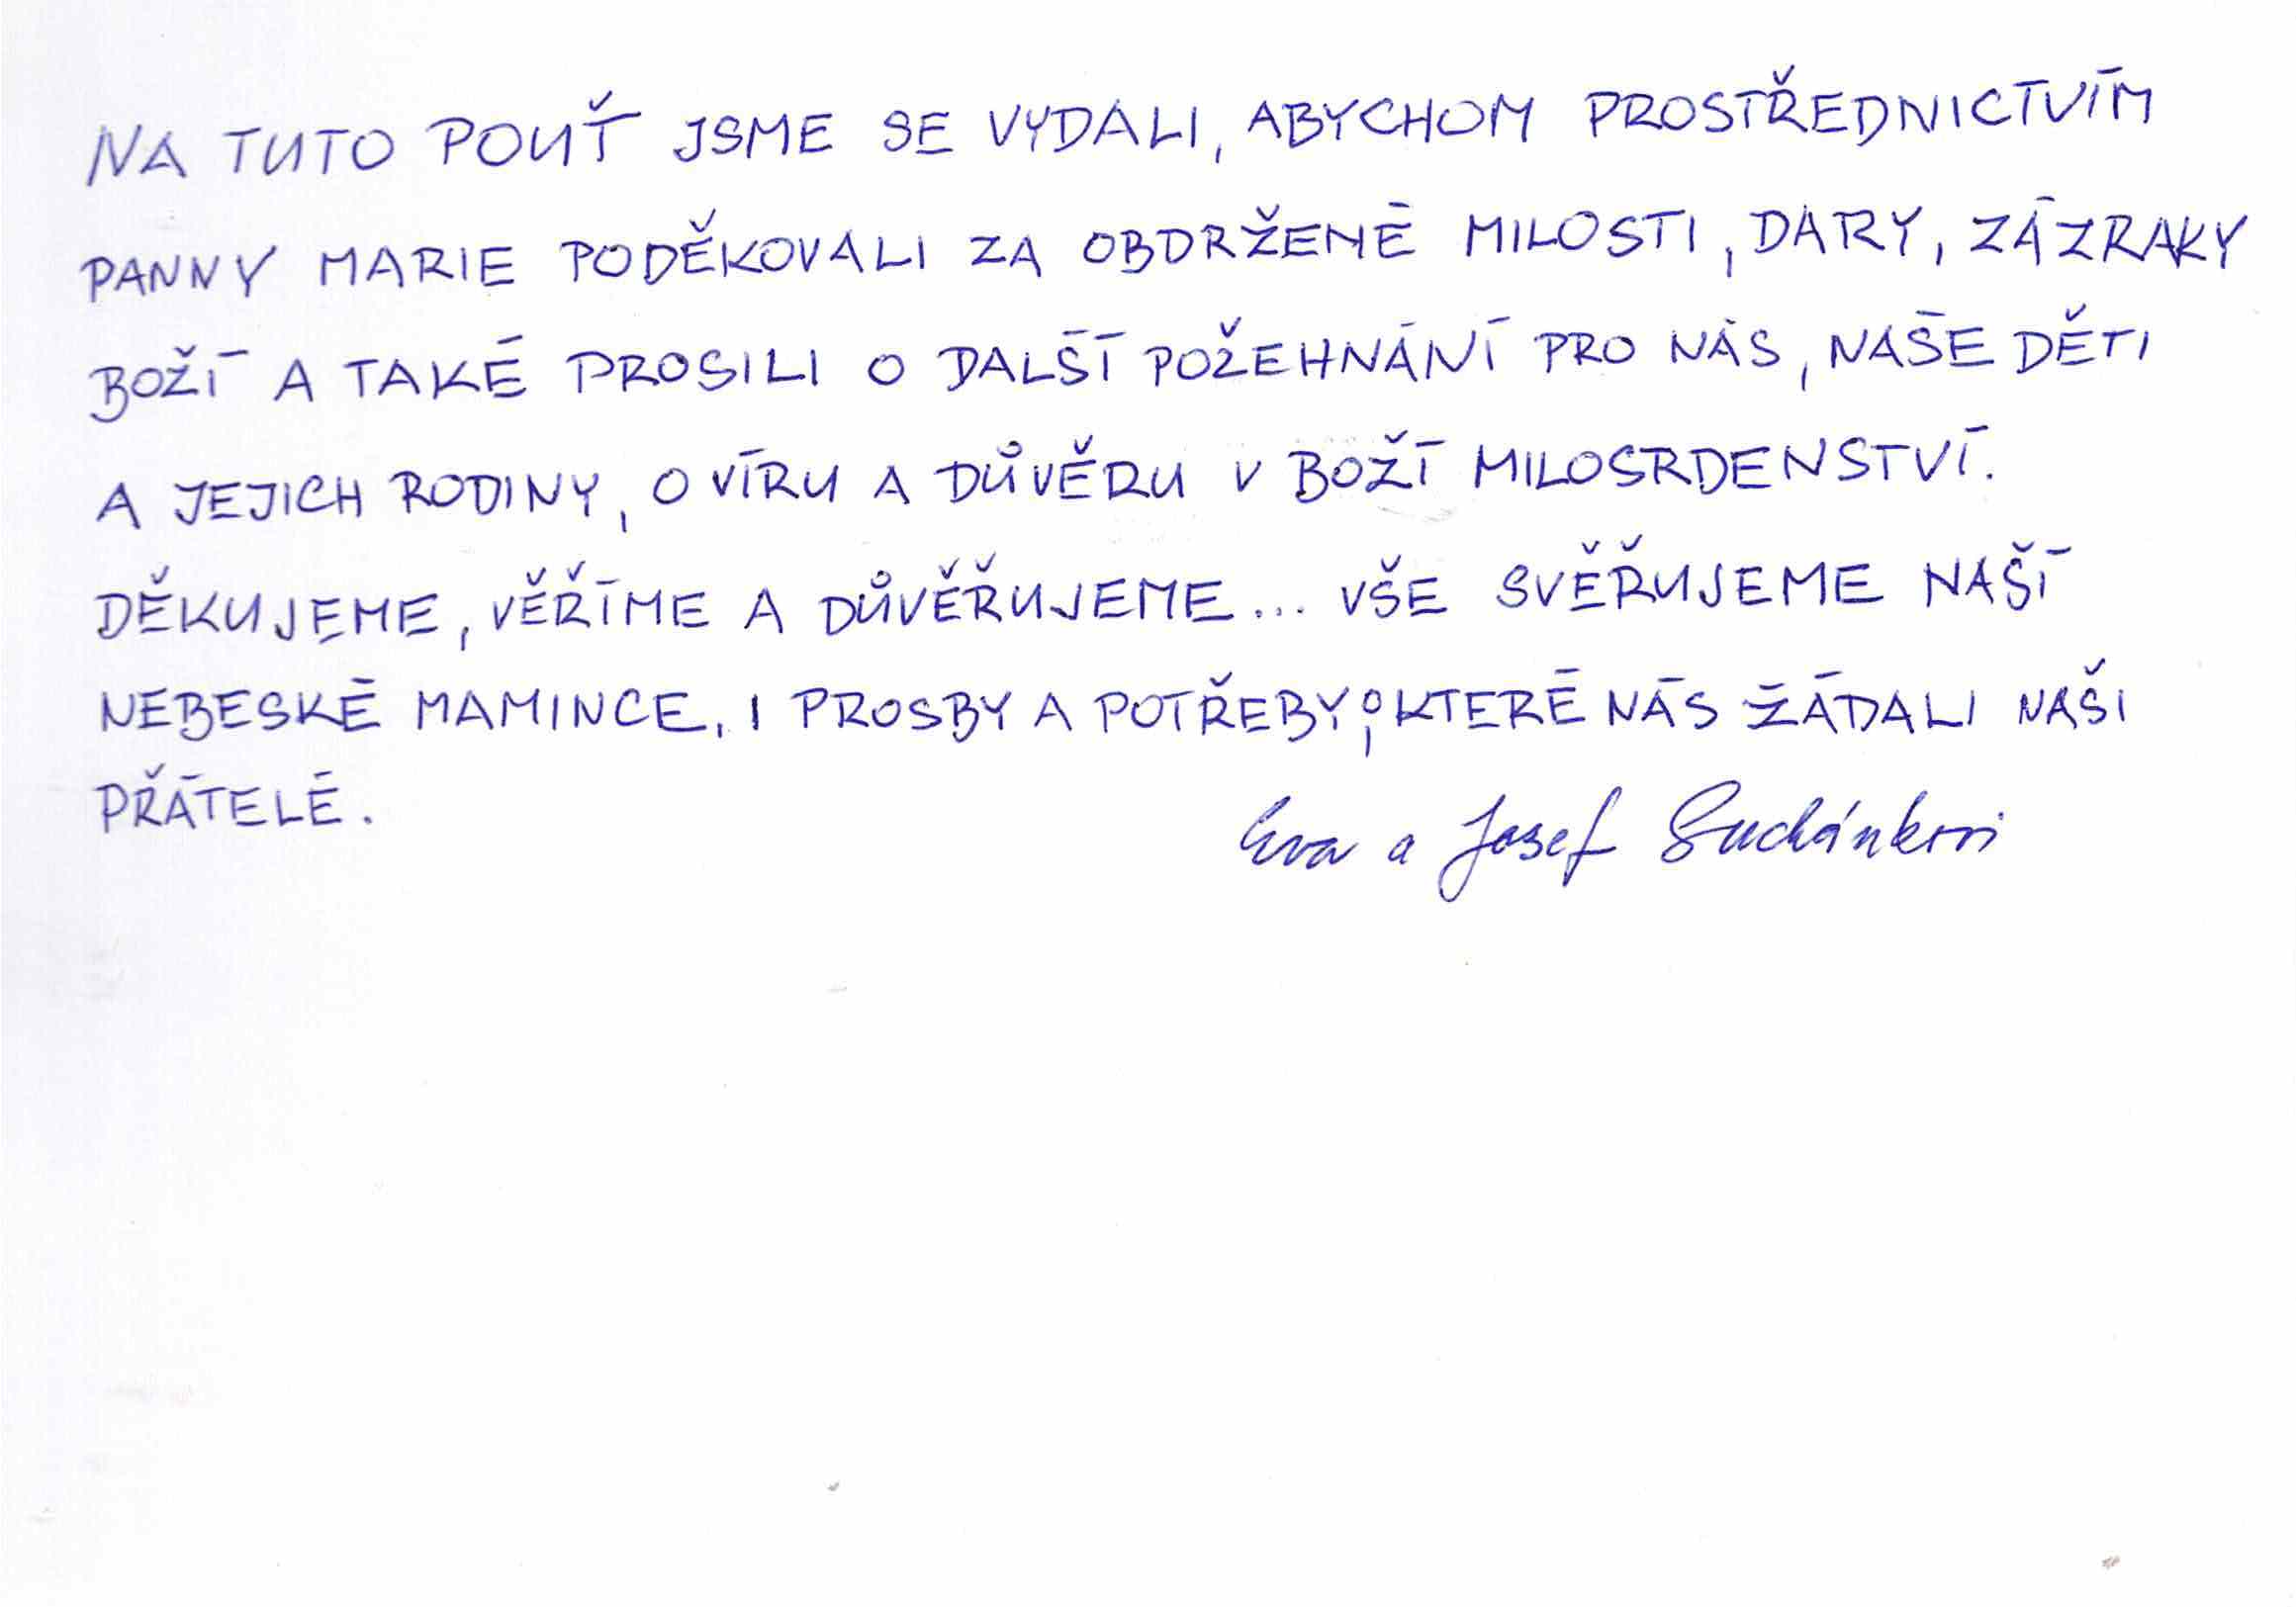 NA TUTO POUŤ JSME SE VYDALI, ABYCHOM PROSTŘEDNICTVÍM
PANNY MARIE PODĚKOVALI ZA OBDRŽENÉ MILOSTI, DARY, ZÁZRAKY
BOŽÍ A TAKÉ PROSILI O DALŠÍ POŽEHNÁNÍ PRO NÁS, NAŠE DĚTI
A JEJICH RODINY, O VÍRU A DŮVĚRU V BOŽÍ MILOSRDENSTVÍ.
DĚKUJEME, VĚŘÍME A DŮVĚŘUJEME... VŠE SVĚŘUJEME NAŠÍ
NEBESKÉ MAMINCE. I PROSBY A POTŘEBY, O KTERÉ NÁS ŽÁDALI NAŠI
PŘÁTELÉ.
Eva a Josef Suchánkovi